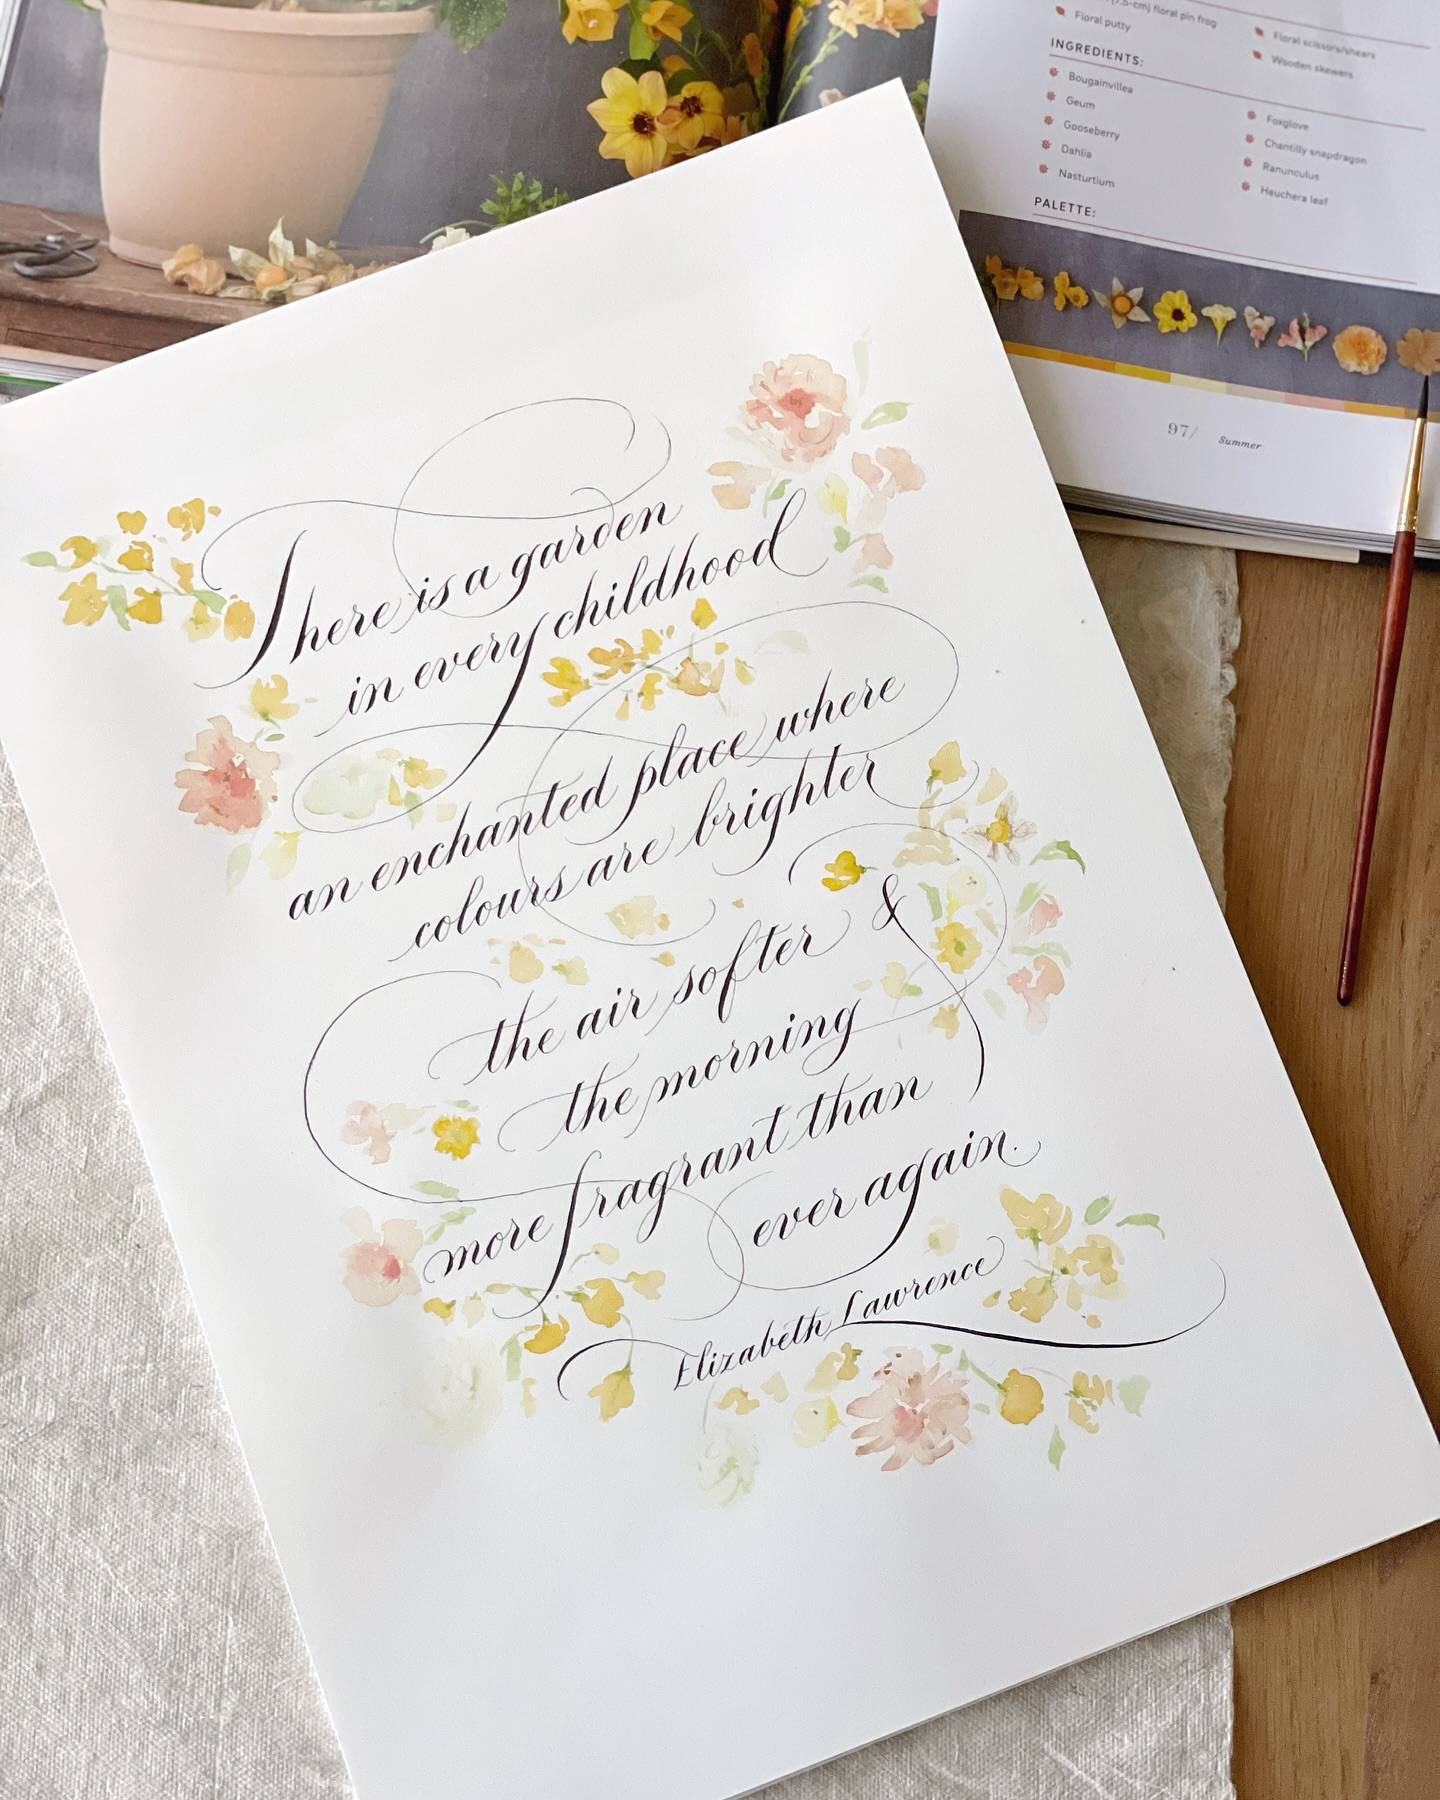 (7.5-cm) floral pin frog
Floral putty
Floral scissors/shears
Wooden skewers
INGREDIENTS:
Bougainvillea
Geum
Gooseberry
Dahlia
Nasturtium
Foxglove
Chantilly snapdragon
Ranunculus
Heuchera leaf
PALETTE:
97/ Summer
There is a garden
in every childhood
an enchanted place where
colours are brighter
the air softer &
the morning
more fragrant than
ever again.
Elizabeth Lawrence